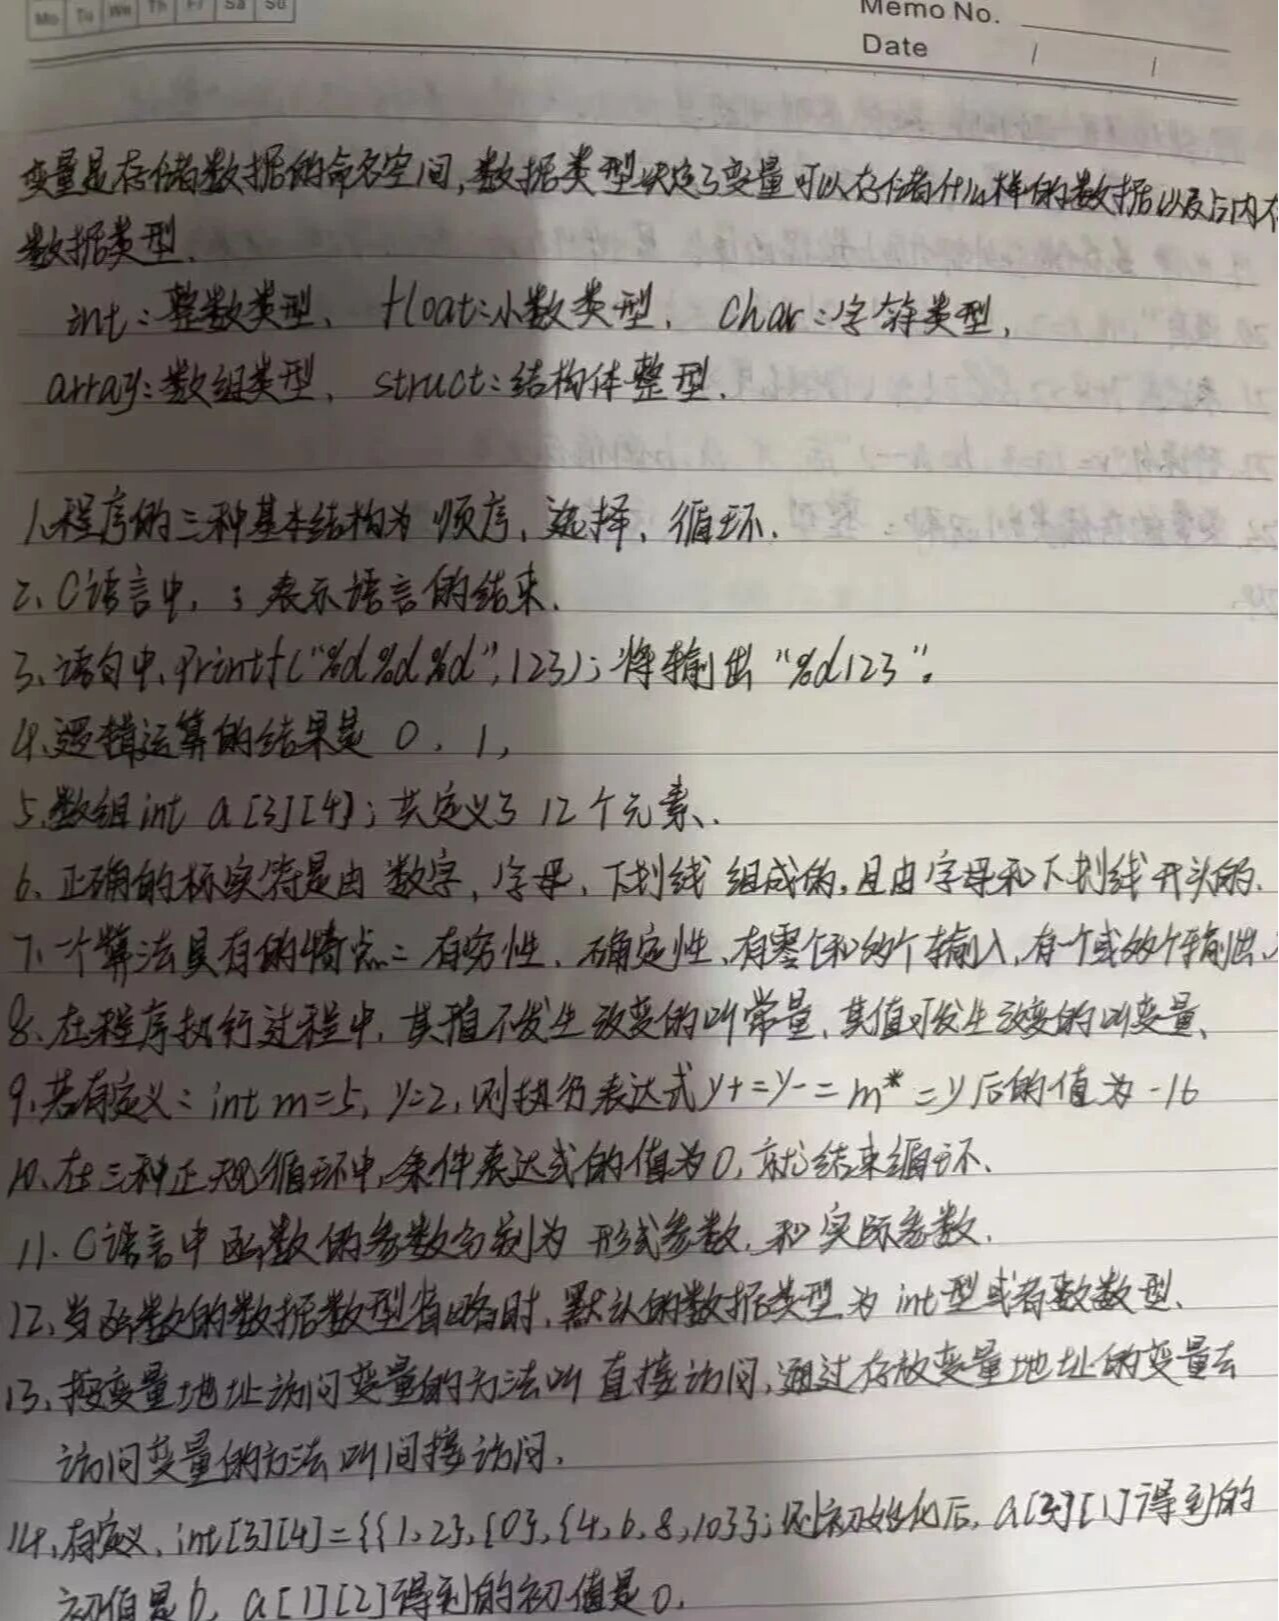 Mo Tu We Th Fr Sa Su
Memo No.
Date / /
变量是存储数据的命名空间,数据类型决定了变量可以存储什么样的数据以及与内存
数据类型.
int:整数类型、 float:小数类型. Char:字符类型,
array:数组类型、 struct:结构体整型.
1.程序的三种基本结构为 顺序、选择、循环.
2、C语言中, ; 表示语言的结束.
3、语句中,printf("%d%d%d",123);将输出 "%d123".
4.逻辑运算的结果是 0 、1,
5.数组int a[3][4];共定义了 12个元素.
6、正确的标实符是由 数字,字母,下划线 组成的,且由字母和下划线开头的.
7、一个算法具有的特点:有穷性、确定性、有零个和的个输入,有一个或的个输出.
8、在程序执行过程中,其值不发生改变的叫常量,其值可发生改变的叫变量、
9.若有定义:int m=5, y=2,则执行表达式y+=y-=m*=y后的值为-16
10、在三种正规循环中,条件表达式的值为0,就结束循环、
11. C语言中函数的参数分别为 形式参数,和实际参数.
12、当函数的数据数型省略时,默认的数据类型为 int型或者数数型、
13、按变量地址访问变量的方法叫直接访问,通过存放变量地址的变量去
访问变量的方法叫间接访问.
14、有定义、int[3][4]={{1,2},{0},{4,6,8,10}};则初始化后,a[3][1]得到的
初值是6, a[1][2]得到的初值是0.